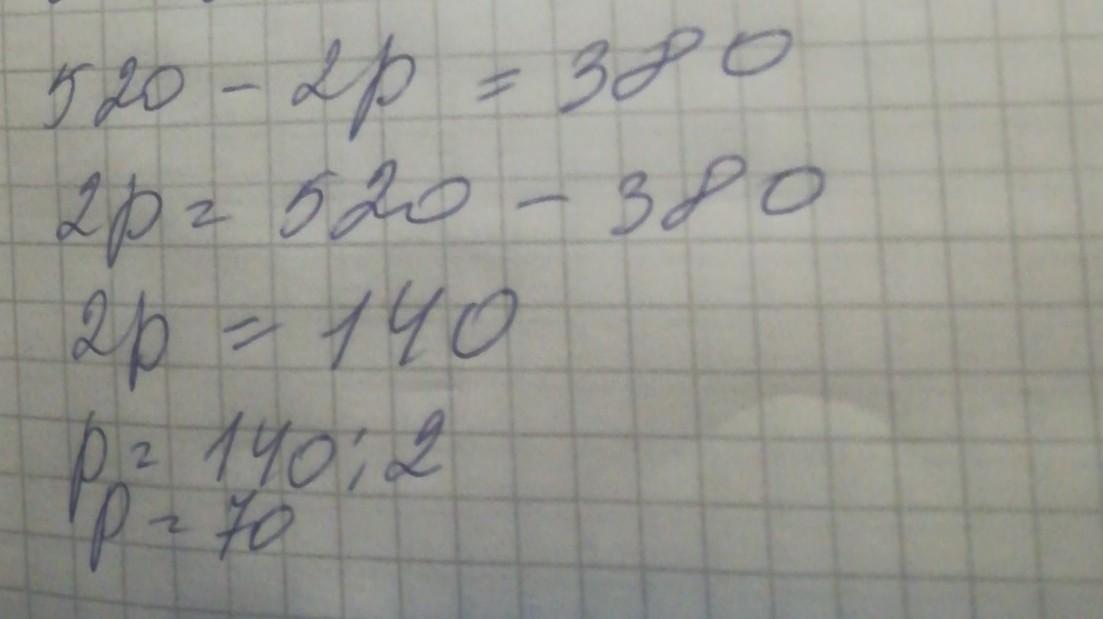 520 - 2p = 380
2p = 520 - 380
2p = 140
p = 140 : 2
p = 70